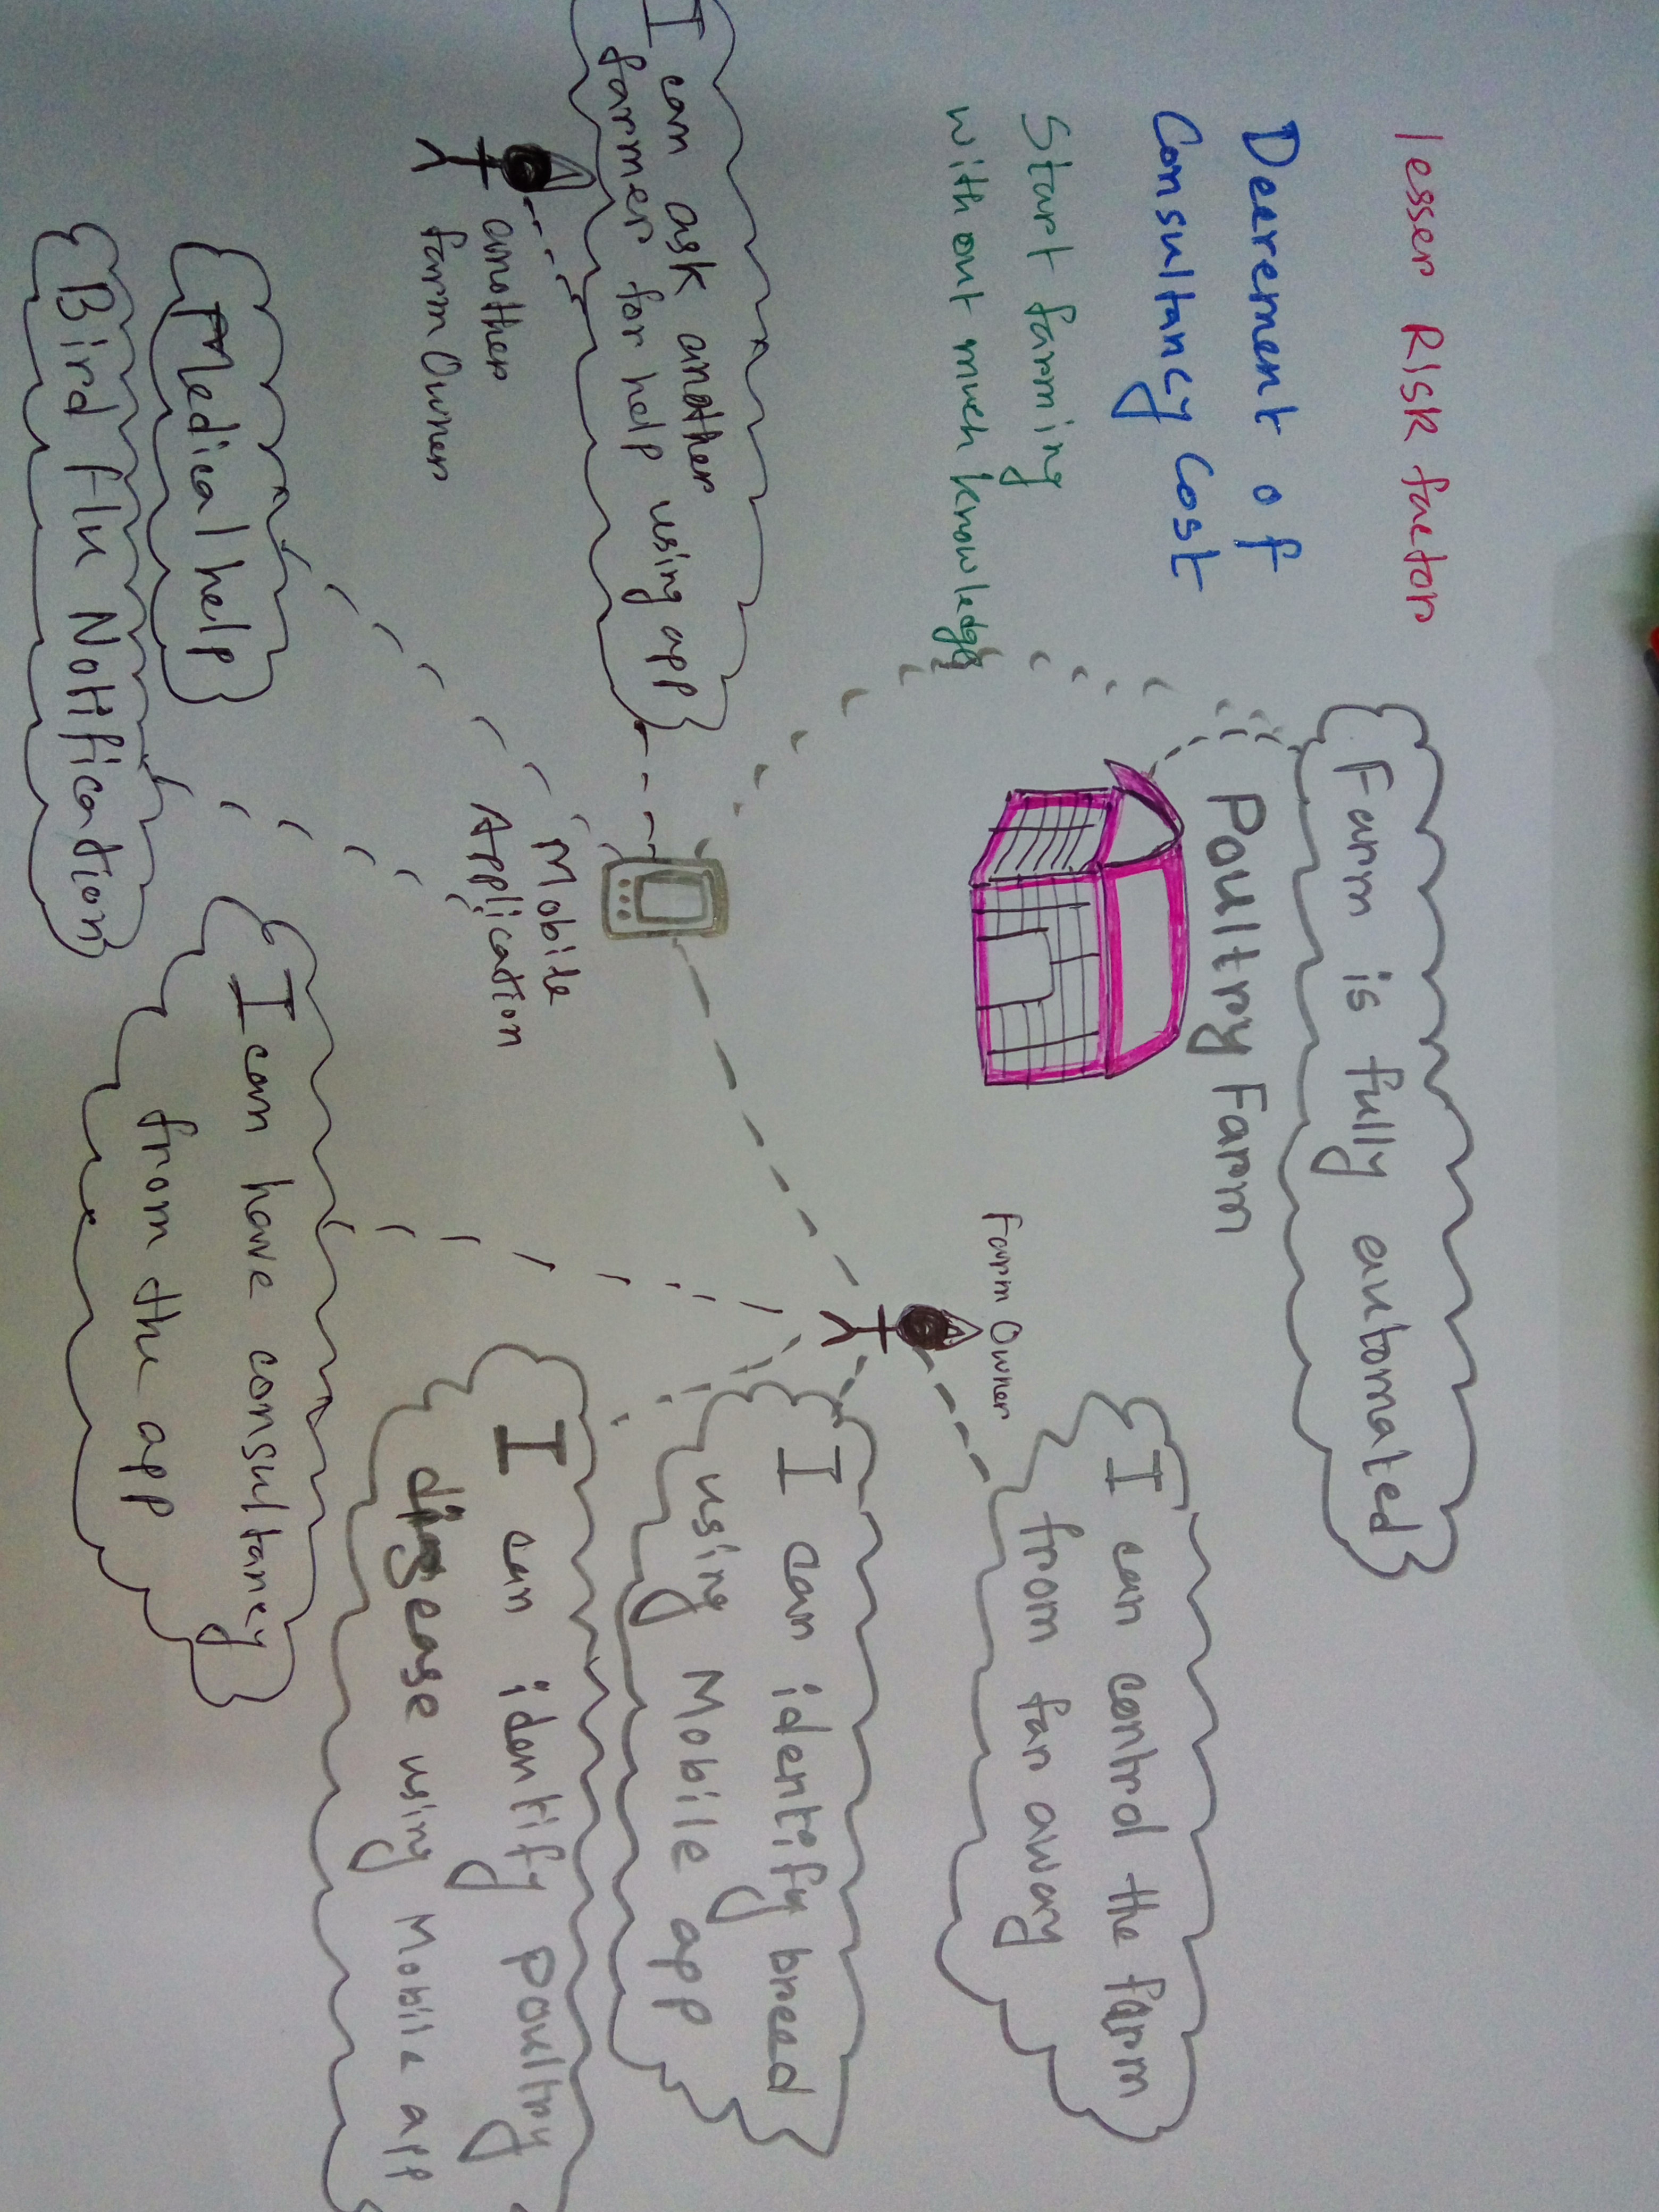 lesser Risk factor
Decrement of
Consultancy Cost
Start farming
without much knowledge
Farm is fully automated
Poultry Farm
I can control the farm
from far away
Farm Owner
I can identify breed
using Mobile app
I can identify poultry
disease using Mobile app
I can ask another
farmer for help using app
another
farm Owner
Mobile
Application
Medical help
Bird Flu Notification
I can have consultancy
from the app